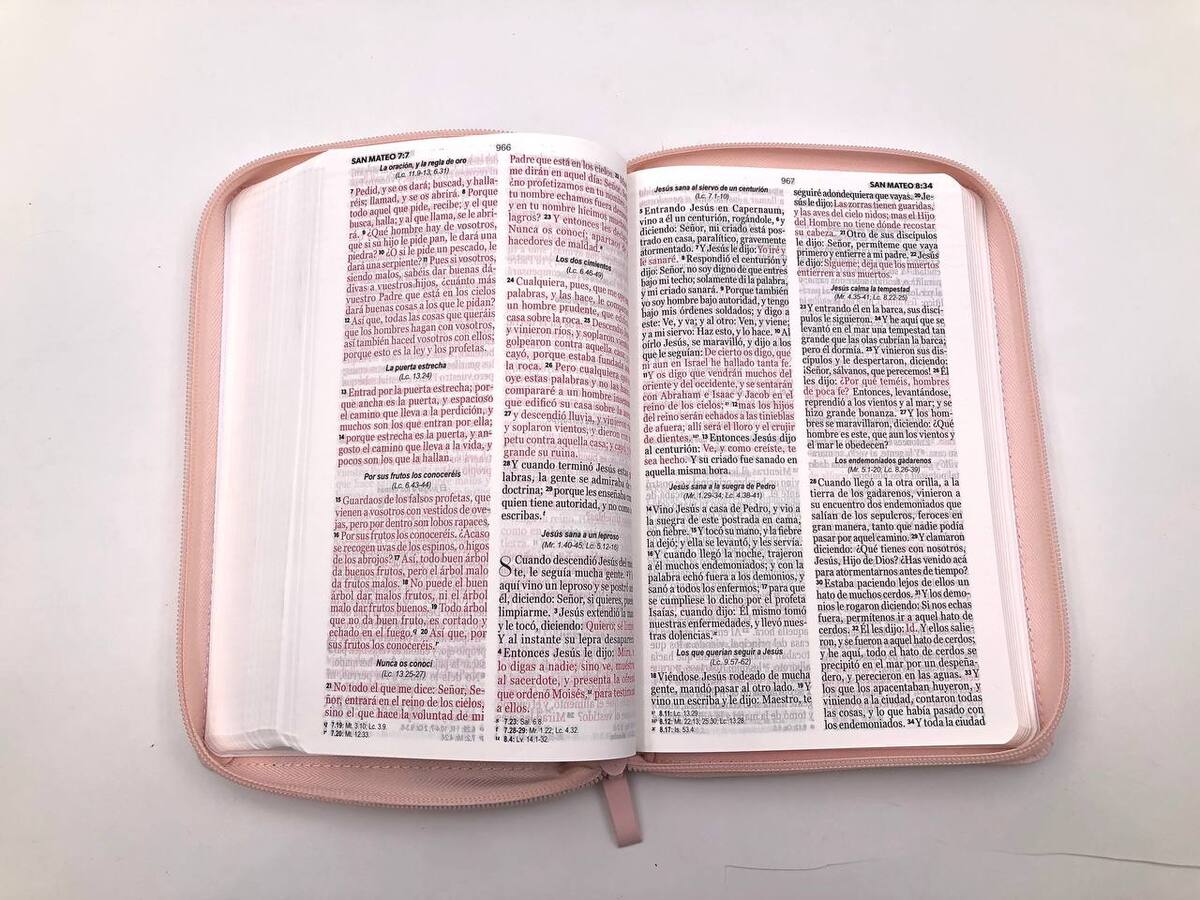 SAN MATEO 7:7
966
La oración, y la regla de oro
(Lc. 11.9-13; 6.31)
7 Pedid, y se os dará; buscad, y halla-
réis; llamad, y se os abrirá. 8 Porque
todo aquel que pide, recibe; y el que
busca, halla; y al que llama, se le abri-
rá. 9 ¿Qué hombre hay de vosotros,
que si su hijo le pide pan, le dará una
piedra? 10 ¿O si le pide un pescado, le
dará una serpiente? 11 Pues si vosotros,
siendo malos, sabéis dar buenas dá-
divas a vuestros hijos, ¿cuánto más
vuestro Padre que está en los cielos
dará buenas cosas a los que le pidan?
12 Así que, todas las cosas que queráis
que los hombres hagan con vosotros,
así también haced vosotros con ellos;
porque esto es la ley y los profetas.
La puerta estrecha
(Lc. 13.24)
13 Entrad por la puerta estrecha; por-
que ancha es la puerta, y espacioso
el camino que lleva a la perdición, y
muchos son los que entran por ella;
14 porque estrecha es la puerta, y an-
gosto el camino que lleva a la vida, y
pocos son los que la hallan.
Por sus frutos los conoceréis
(Lc. 6.43-44)
15 Guardaos de los falsos profetas, que
vienen a vosotros con vestidos de ove-
jas, pero por dentro son lobos rapaces.
16 Por sus frutos los conoceréis. ¿Acaso
se recogen uvas de los espinos, o higos
de los abrojos? 17 Así, todo buen árbol
da buenos frutos, pero el árbol malo
da frutos malos. 18 No puede el buen
árbol dar malos frutos, ni el árbol
malo dar frutos buenos. 19 Todo árbol
que no da buen fruto, es cortado y
echado en el fuego. q 20 Así que, por
sus frutos los conoceréis. r
Nunca os conocí
(Lc. 13.25-27)
21 No todo el que me dice: Señor, Se-
ñor, entrará en el reino de los cielos,
sino el que hace la voluntad de mi
q 7.19: Mt. 3.10; Lc. 3.9.
r 7.20: Mt. 12.33.
Padre que está en los cielos. 22
me dirán en aquel día: Señor
¿no profetizamos en tu nombre
tu nombre echamos fuera
y en tu nombre hicimos
lagros? 23 Y entonces les
Nunca os conocí; apartaos
hacedores de maldad. s
Los dos cimientos
(Lc. 6.46-49)
24 Cualquiera, pues, que me
palabras, y las hace, le
un hombre prudente, que
casa sobre la roca. 25 Descendió
y vinieron ríos, y soplaron
golpearon contra aquella casa;
cayó, porque estaba fundada
la roca. 26 Pero cualquiera
oye estas palabras y no las
compararé a un hombre
que edificó su casa sobre la
27 y descendió lluvia, y vinieron
y soplaron vientos, y dieron con
petu contra aquella casa; y cayó
grande su ruina.
28 Y cuando terminó Jesús estas
labras, la gente se admiraba de
doctrina; 29 porque les enseñaba
quien tiene autoridad, y no como
escribas. t
Jesús sana a un leproso
(Mr. 1.40-45; Lc. 5.12-16)
8 Cuando descendió Jesús del
te, le seguía mucha gente.
aquí vino un leproso y se postró
él, diciendo: Señor, si quieres,
limpiarme. 3 Jesús extendió la
y le tocó, diciendo: Quiero; sé
Y al instante su lepra
4 Entonces Jesús le dijo: Mira,
lo digas a nadie; sino ve,
al sacerdote, y presenta la
que ordenó Moisés, u para
a ellos.
s 7.23: Sal. 6.8.
t 7.28-29: Mr. 1.22; Lc. 4.32.
u 8.4: Lv. 14.1-32.
967
SAN MATEO 8:34
Jesús sana al siervo de un centurión
(Lc. 7.1-10)
5 Entrando Jesús en Capernaum,
vino a él un centurión, rogándole, 6 y
diciendo: Señor, mi criado está pos-
trado en casa, paralítico, gravemente
atormentado. 7 Y Jesús le dijo: Yo iré y
le sanaré. 8 Respondió el centurión y
dijo: Señor, no soy digno de que entres
bajo mi techo; solamente di la palabra,
y mi criado sanará. 9 Porque también
yo soy hombre bajo autoridad, y tengo
bajo mis órdenes soldados; y digo a
este: Ve, y va; y al otro: Ven, y viene;
y a mi siervo: Haz esto, y lo hace. 10 Al
oírlo Jesús, se maravilló, y dijo a los
que le seguían: De cierto os digo, que
ni aun en Israel he hallado tanta fe.
11 Y os digo que vendrán muchos del
oriente y del occidente, y se sentarán
con Abraham e Isaac y Jacob en el
reino de los cielos; 12 mas los hijos
del reino serán echados a las tinieblas
de afuera; allí será el lloro y el crujir
de dientes. 13 Entonces Jesús dijo
al centurión: Ve, y como creíste, te
sea hecho. Y su criado fue sanado en
aquella misma hora.
Jesús sana a la suegra de Pedro
(Mr. 1.29-34; Lc. 4.38-41)
14 Vino Jesús a casa de Pedro, y vio a
la suegra de este postrada en cama,
con fiebre. 15 Y tocó su mano, y la fiebre
la dejó; y ella se levantó, y les servía.
16 Y cuando llegó la noche, trajeron
a él muchos endemoniados; y con la
palabra echó fuera a los demonios, y
sanó a todos los enfermos; 17 para que
se cumpliese lo dicho por el profeta
Isaías, cuando dijo: Él mismo tomó
nuestras enfermedades, y llevó nues-
tras dolencias.
Los que querían seguir a Jesús
(Lc. 9.57-62)
18 Viéndose Jesús rodeado de mucha
gente, mandó pasar al otro lado. 19 Y
vino un escriba y le dijo: Maestro, te
8.11: Lc. 13.29.
8.12: Mt. 22.13; 25.30; Lc. 13.28.
8.17: Is. 53.4.
seguiré adondequiera que vayas. 20 Je-
sús le dijo: Las zorras tienen guaridas,
y las aves del cielo nidos; mas el Hijo
del Hombre no tiene dónde recostar
su cabeza. 21 Otro de sus discípulos
le dijo: Señor, permíteme que vaya
primero y entierre a mi padre. 22 Jesús
le dijo: Sígueme; deja que los muertos
entierren a sus muertos.
Jesús calma la tempestad
(Mr. 4.35-41; Lc. 8.22-25)
23 Y entrando él en la barca, sus discí-
pulos le siguieron. 24 Y he aquí que se
levantó en el mar una tempestad tan
grande que las olas cubrían la barca;
pero él dormía. 25 Y vinieron sus dis-
cípulos y le despertaron, diciendo:
¡Señor, sálvanos, que perecemos! 26 Él
les dijo: ¿Por qué teméis, hombres
de poca fe? Entonces, levantándose,
reprendió a los vientos y al mar; y se
hizo grande bonanza. 27 Y los hom-
bres se maravillaron, diciendo: ¿Qué
hombre es este, que aun los vientos y
el mar le obedecen?
Los endemoniados gadarenos
(Mr. 5.1-20; Lc. 8.26-39)
28 Cuando llegó a la otra orilla, a la
tierra de los gadarenos, vinieron a
su encuentro dos endemoniados que
salían de los sepulcros, feroces en
gran manera, tanto que nadie podía
pasar por aquel camino. 29 Y clamaron
diciendo: ¿Qué tienes con nosotros,
Jesús, Hijo de Dios? ¿Has venido acá
para atormentarnos antes de tiempo?
30 Estaba paciendo lejos de ellos un
hato de muchos cerdos. 31 Y los demo-
nios le rogaron diciendo: Si nos echas
fuera, permítenos ir a aquel hato de
cerdos. 32 Él les dijo: Id. Y ellos salie-
ron, y se fueron a aquel hato de cerdos;
y he aquí, todo el hato de cerdos se
precipitó en el mar por un despeña-
dero, y perecieron en las aguas. 33 Y
los que los apacentaban huyeron, y
viniendo a la ciudad, contaron todas
las cosas, y lo que había pasado con
los endemoniados. 34 Y toda la ciudad